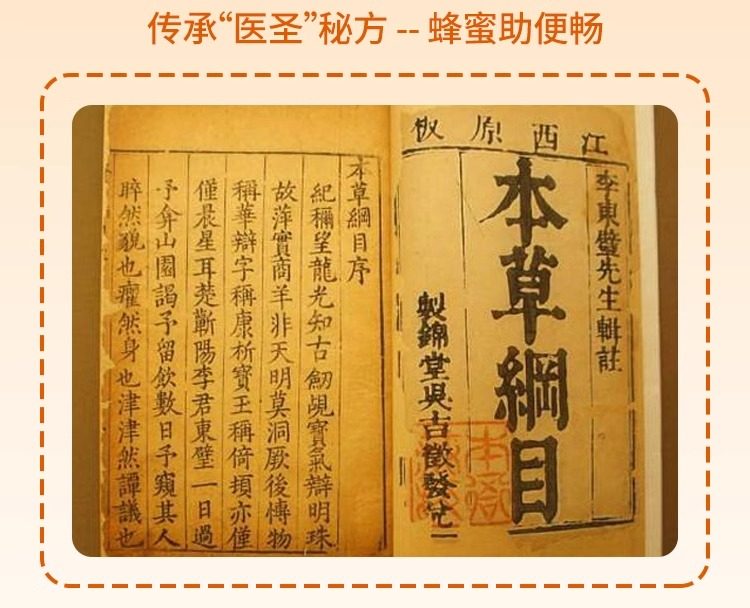 传承“医圣”秘方 -- 蜂蜜助便畅
江西原板
李東璧先生輯註
本草綱目
製錦堂吳吉徵發兌
本草綱目序
紀稱望龍光知古劒覘寶氣辯明珠
故萍實商羊非天明莫洞厥後慱物
稱華辯字稱康析寶玉稱倚頓亦僅
僅晨星耳楚蘄陽李君東璧一日過
予弇山園謁予留飲數日予窺其人
睟然貌也癯然身也津津然譚議也